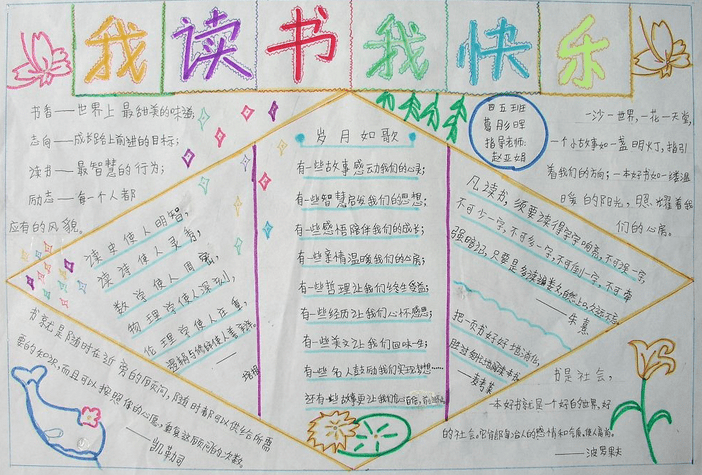 我读书我快乐
书香——世界上最甜美的味道;
志向——成长路上前进的目标;
读书——最智慧的行为;
励志——每一个人都
应有的风貌。
四五班
葛彤晖
指导老师:
赵亚娟
一沙一世界,一花一天堂,
一个小故事如一盏明灯,指引
着我们的方向;一本好书如一缕温
暖的阳光,照耀着我
们的心房。
读史使人明智,
读诗使人灵秀,
数学使人周密,
物理学使人深刻,
伦理学使人庄重,
逻辑与修辞使人善辩。
——培根
岁月如歌
有一些故事感动我们的心灵;
有一些智慧启发我们的思想;
有一些感悟陪伴我们的成长;
有一些亲情温暖我们的心房;
有一些哲理让我们终生受益;
有一些经历让我们心怀感恩;
有一些美文让我们回味一生;
有一些名人鼓励我们实现梦想……
还有一些故事更让我们
凡读书,须要读得字字响亮,不可误一字,
不可少一字,不可多一字,不可倒一字,不可牵
强暗记,只要是多读遍数,自然上口,久远不忘。
——朱熹
把一页书好好地消化,
胜过匆忙地阅读一本书。
——麦考莱
书就是随时在近旁的顾问,随时都可以供给所需
要的知识,而且可以按照你的心愿,重复这顾问的次数。
——凯勒司
书是社会,
一本好书就是一个好的世界,好
的社会。它能陶冶人的感情和气质,使人高尚。
——波罗果夫